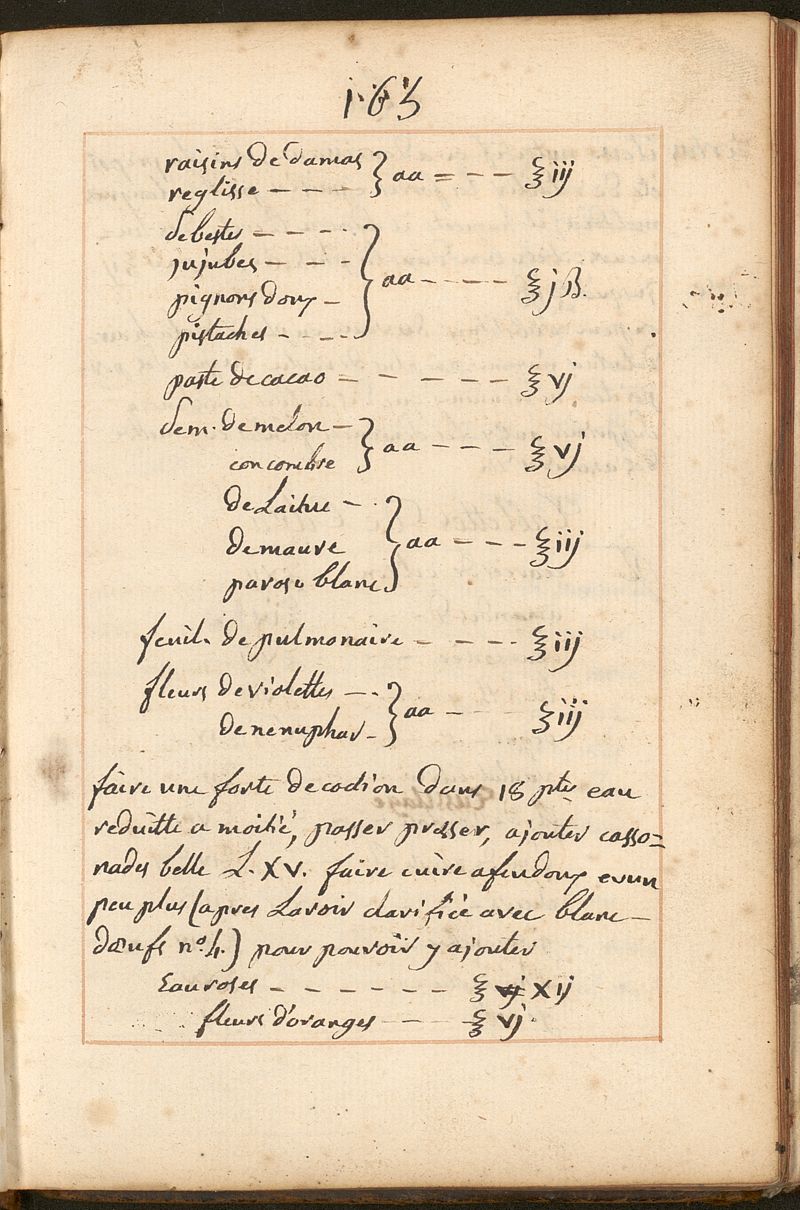 163
raisins de damas } aa = - - ℥ iij
reglisse - - - -
sebestes - - - -
jujubes - - - - } aa - - - - ℥ j ß.
pignons doux -
pistaches - - - -
paste de cacao - - - - - ℥ vj
sem. de melon - } aa - - - ℥ vj
concombre
de Laitue - .
de mauve } aa - - - ℥ iij
pavos blanc
feuil. de pulmonaire - - - - ℥ iij
fleurs de violettes - . } aa - - - ℥ iij
de nenuphar -
faire une forte decoction dans 18 ptes eau
reduitte a moitié, passer presser, ajouter casso=
nades belle L. XV. faire cuire a feu doux
peu plus (apres Lavoir clarifiée avec blanc
dœufs no. 4.) pour pouvoir y ajouter
Eau roses - - - - - - ℥ vj XIJ
fleurs d'oranges - - - ℥ vj.